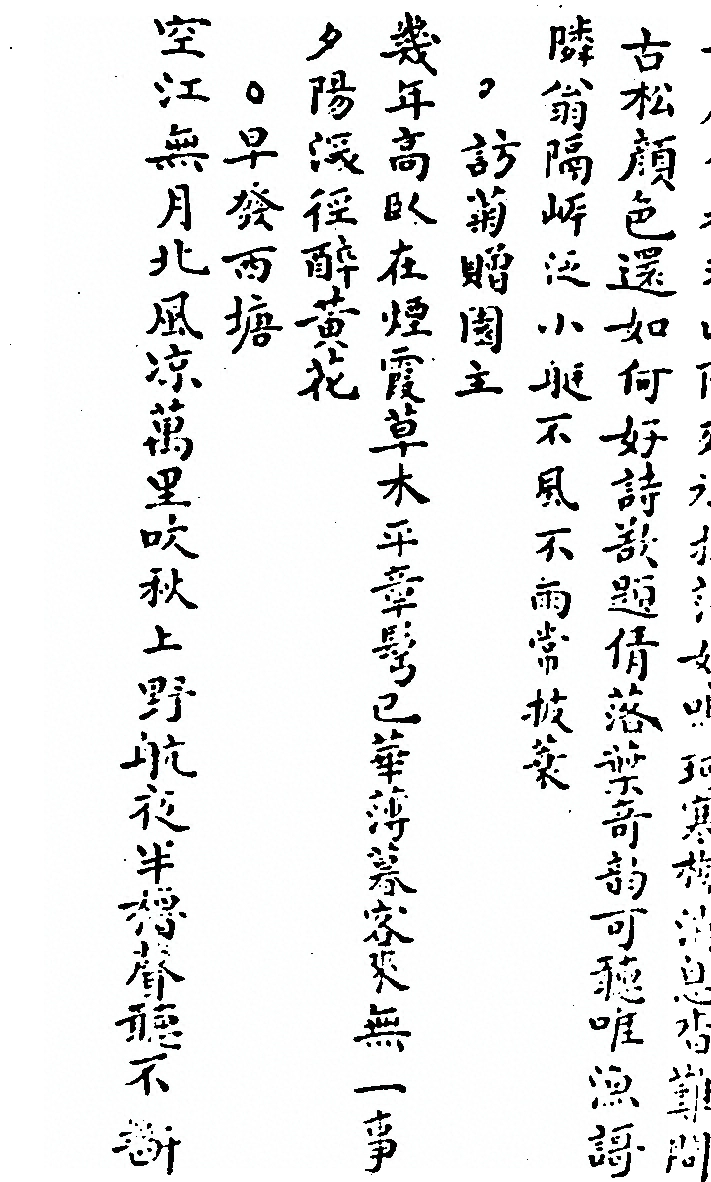 寒梅消息杳難問
古松顏色還如何好詩欲題倩落葉奇韵可聽唯漁謌
隣翁隔岸泛小艇不風不雨常披蓑
訪菊贈園主
幾年高臥在煙霞草木平章鬂已華薄暮客來無一事
夕陽深徑醉黃花
早發西塘
空江無月北風凉萬里吹秋上野航夜半櫓聲聽不斷